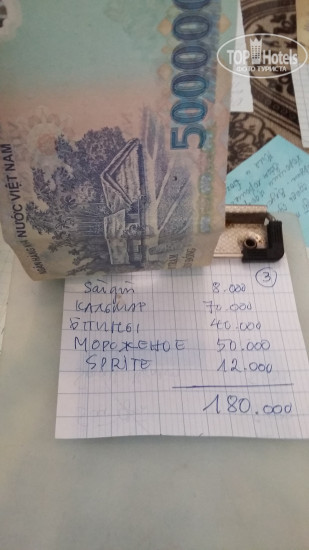 TOPHotels
ФОТО ТУРИСТА
500000
NƯỚC VIỆT NAM
3
Sàigòn 8.000
КАЛЬМАР 70.000
БЛИНЫ 40.000
МОРОЖЕНОЕ 50.000
SPRITE 12.000
180.000